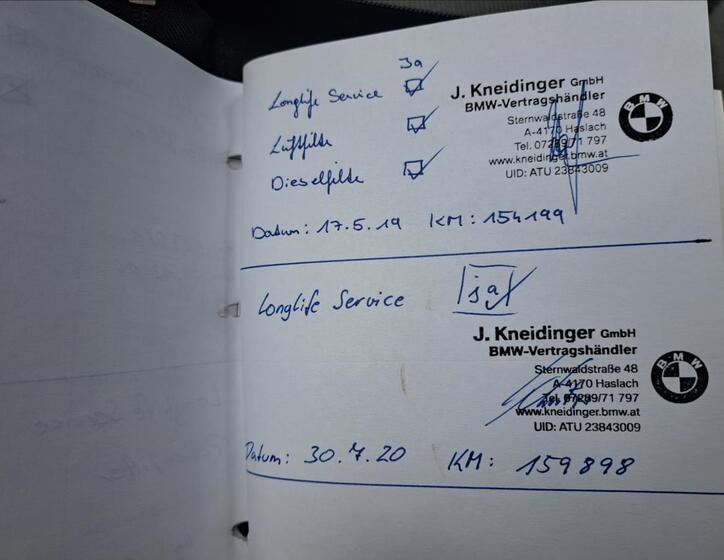 Ja
Longlife Service
Luftfilter
Dieselfilter
J. Kneidinger GmbH
BMW-Vertragshändler
Sternwaldstraße 48
A-4170 Haslach
Tel. 07289/71 797
www.kneidinger.bmw.at
UID: ATU 23843009
BMW
Datum: 17.5.19 KM: 154199
Longlife Service ja
J. Kneidinger GmbH
BMW-Vertragshändler
Sternwaldstraße 48
A-4170 Haslach
Tel. 07289/71 797
www.kneidinger.bmw.at
UID: ATU 23843009
BMW
Datum: 30.7.20 KM: 159898